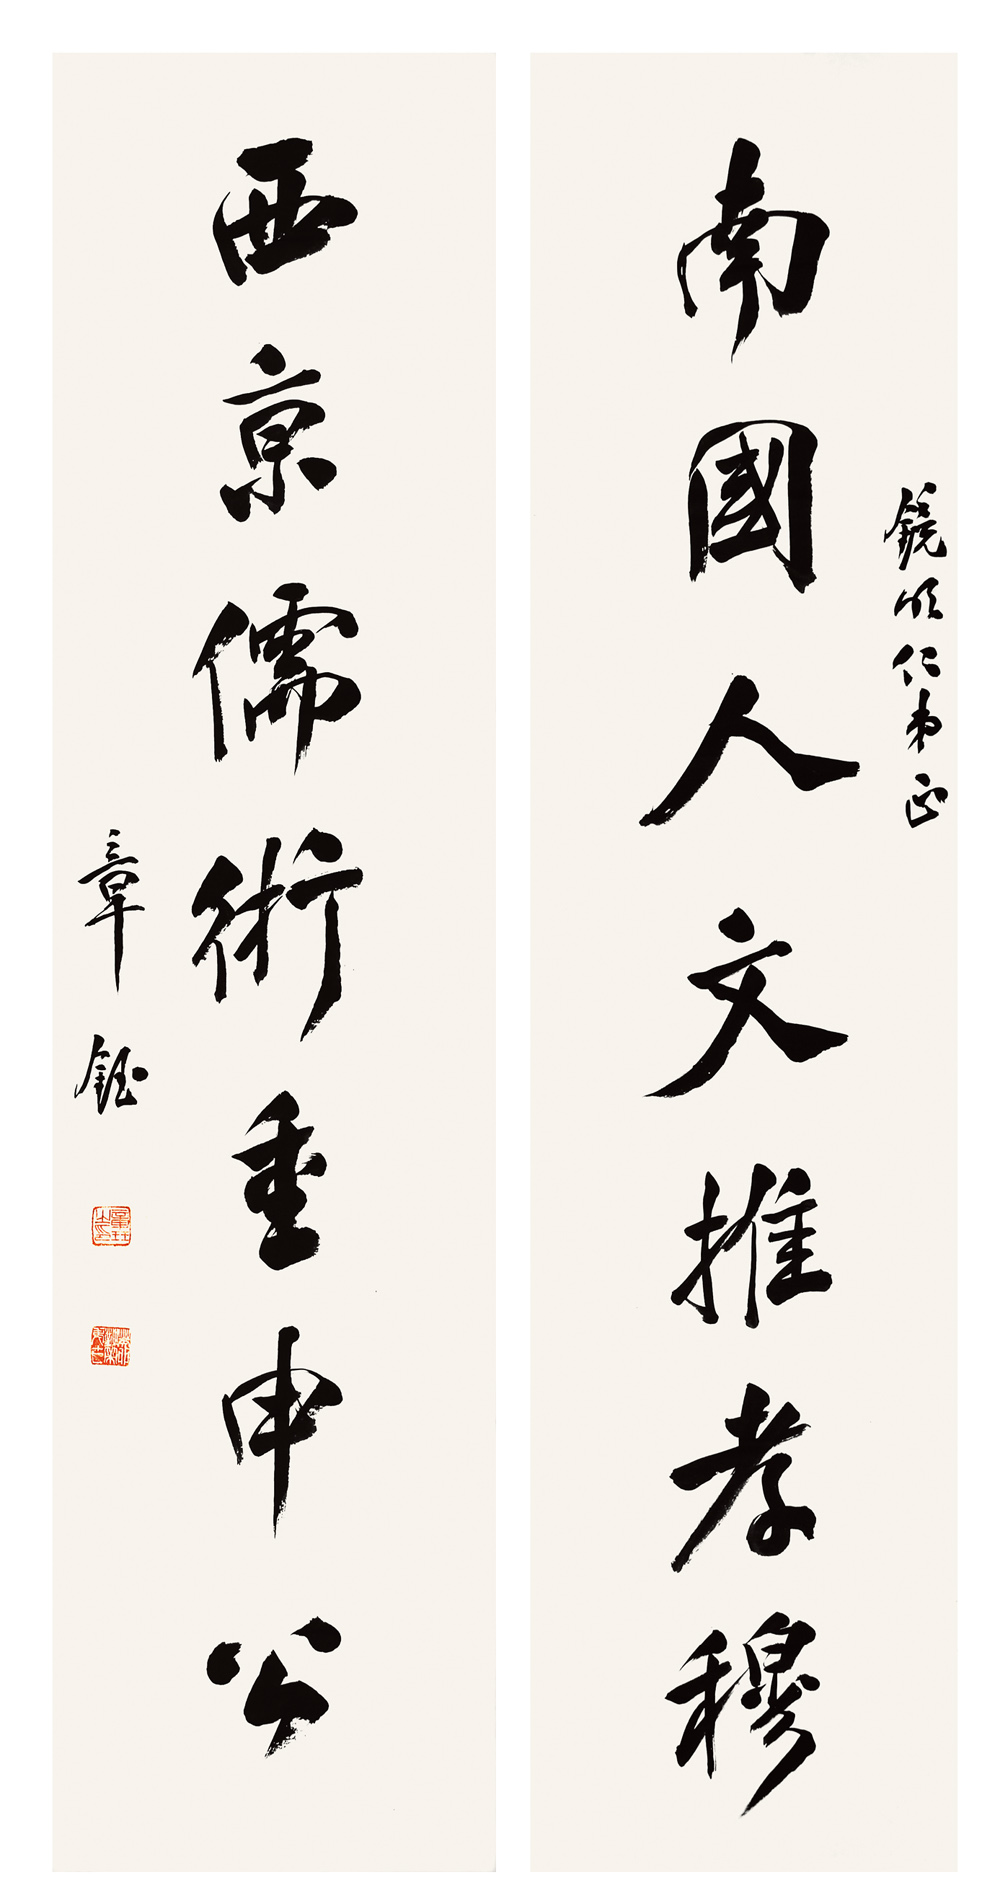 鏡明仁弟正
南國人文推孝穆
西京儒術重申公
章鈺